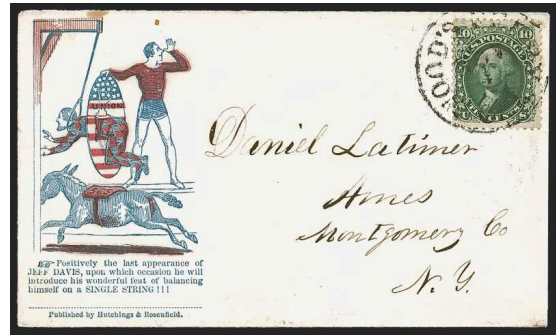 UNION
☞Positively the last appearance of
JEFF DAVIS, upon which occasion he will
introduce his wonderful feat of balancing
himself on a SINGLE STRING!!!
Published by Hutchings & Rosenfield.
10 U.S. POSTAGE 10
Daniel Latimer
Ames
Montgomery Co
N. Y.